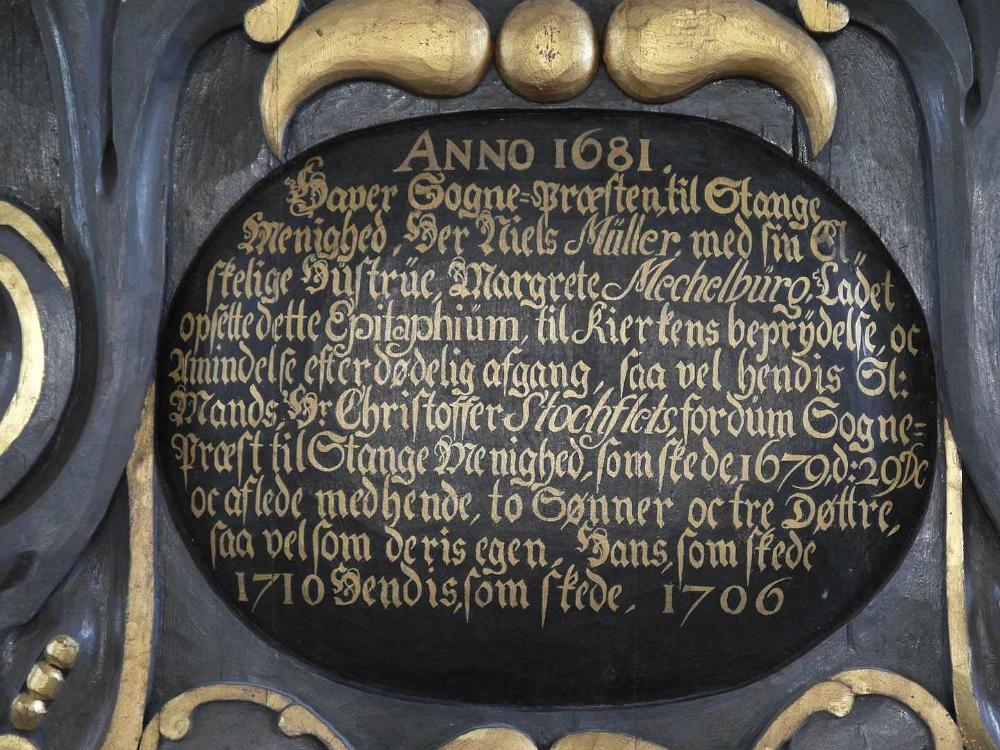 ANNO 1681.
Haver Sogne=Præsten, til Stange
Menighed, Her Niels Müller, med sin El„
skelige Hüstrüe, Margrete Mechelbürg, Ladet
opsette dette Epitaphiüm, til Kierkens beprÿdelse, oc
Amindelse efter dødelig afgang, saa vel hendis Sl:
Mands, Hr Christoffer Stochflets, fordüm Sogne=
Præst til Stange Menighed, som skede, 1679, d: 29 Dc
oc aflede med hende, to Sønner oc tre Døttre,
saa vel som deris egen, Hans, som skede
1710 Hendis, som skede, 1706